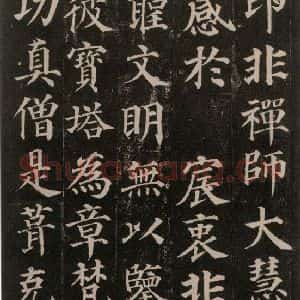 即非禪師大慧
感於 宸衷非
聖文明無以鑒
彼寶塔為章梵
功真僧是葺克
Shufawang.Cn